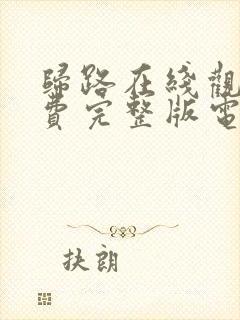 歸路在綫觀
費完整版電
扶朗